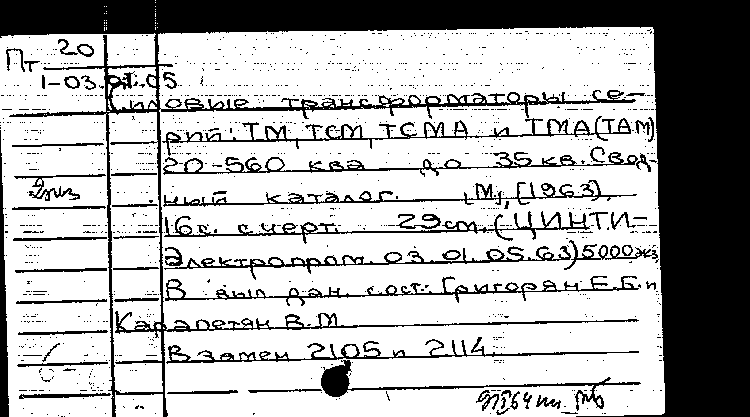 Пт 20
1-03.01.05
Силовые трансформаторы се-
рий: ТМ, ТСМ, ТСМА и ТМА(ТАМ)
20-560 ква до 35 кв. Свод-
2 экз
ный каталог. М., [1963].
16 с. с черт. 29 см. (ЦИНТИ-
Электропром. 03.01.05.63) 5000 экз
В вып. дан. сост.: Григорян Е.Б. и
Карапетян В.М.
Взамен 2105 и 2114.